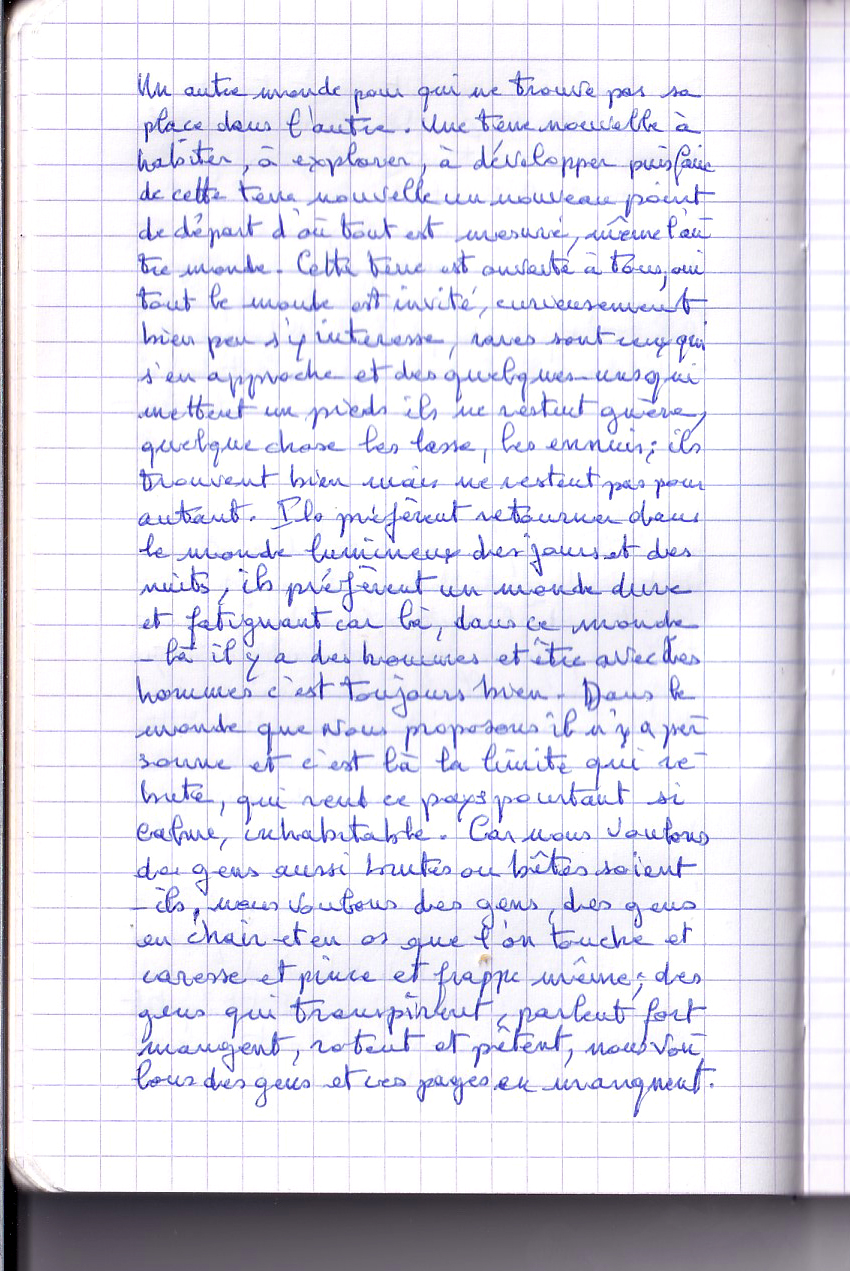 Un autre monde pour qui ne trouve pas sa
place dans l'autre. Une terre nouvelle à
habiter, à explorer, à développer puis faire
de cette terre nouvelle un nouveau point
de départ d'où tout est mesuré, même l'au
tre monde. Cette terre est ouverte à tous, oui
tout le monde est invité, curieusement
bien peu s'y interesse, rares sont ceux qui
s'en approche et des quelques-uns qui
mettent un pieds ils ne restent guère,
quelque chose les lasse, les ennuis; ils
trouvent bien mais ne restent pas pour
autant. Ils préfèrent retourner dans
le monde lumineux des jours et des
nuits, ils préfèrent un monde dure
et fatiguant car là, dans ce monde
-là il y a des hommes et être avec des
hommes c'est toujours bien. Dans le
monde que nous proposons il n'y a per
sonne et c'est là la limite qui re-
bute, qui rend ce pays pourtant si
calme, inhabitable. Car nous voulons
des gens aussi brutes ou bêtes soient
-ils, nous voulons des gens, des gens
en chair et en os que l'on touche et
caresse et pince et frappe même; des
gens qui transpirent, parlent fort
mangent, rotent et pêtent, nous vou
lons des gens et ces pages en manquent.